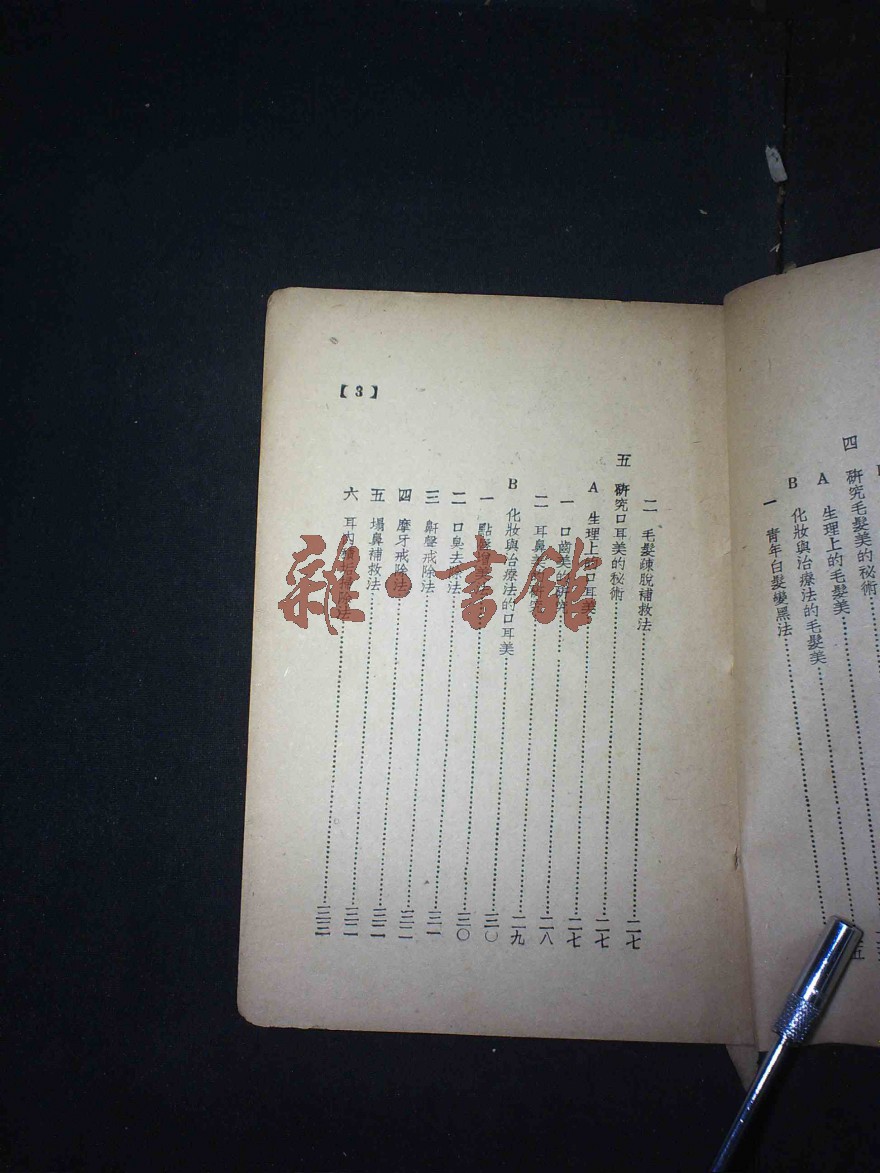 四 研究毛髮美的秘術
A 生理上的毛髮美
B 化妝與治療法的毛髮美
一 青年白髮變黑法
二 毛髮疎脫補救法 二七
五 研究口耳美的秘術 二七
A 生理上的口耳美 二七
一 口齒美的研究
二 耳鼻美 二八
B 化妝與治療法的口耳美 二九
一 點 三〇
二 口臭去除法 三〇
三 鼾聲戒除法 三一
四 摩牙戒除法 三二
五 塌鼻補救法 三二
六 耳內 除法 三三
【3】
雜·書館